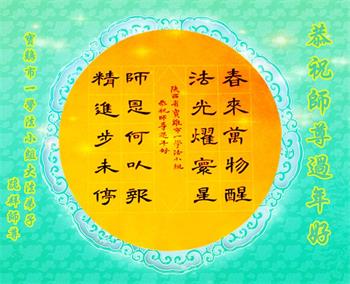 恭祝師尊過年好
春來萬物醒
法光耀寰星
師恩何以報
精進步未停
陝西省寶雞市一學法小組
恭祝師尊過年好
寶鷄市一學法小組大法弟子
敬拜師尊